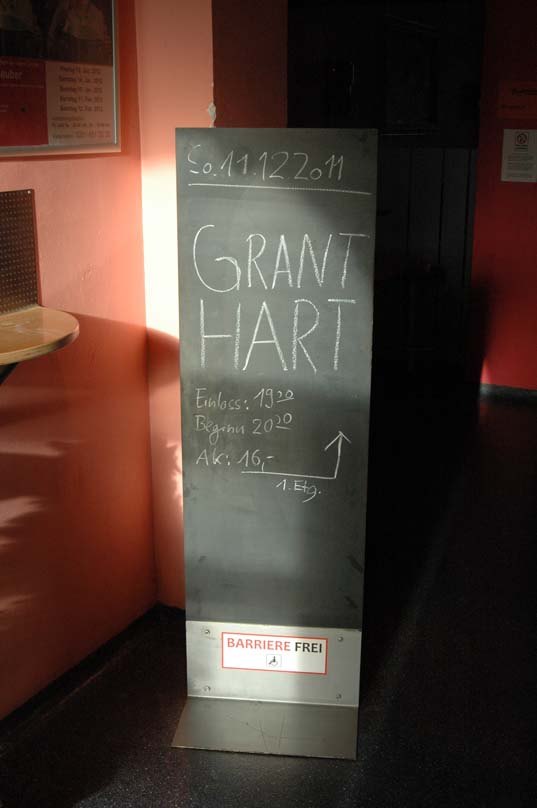 So. 11.12.2011
GRANT
HART
Einlass: 19 30
Beginn 20 30
AK: 16,-
1. Etg.
BARRIERE FREI